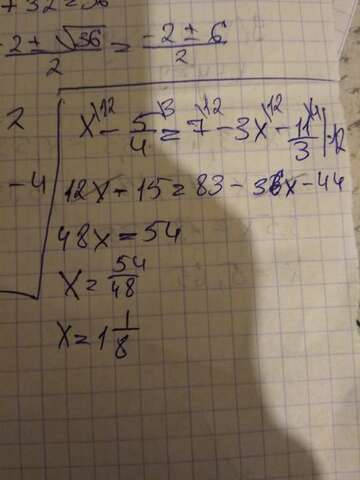 + 32 = 36
-2 ± √36 / 2 = -2 ± 6 / 2
2
x\12 - 5/4\3 = 7\12 - 3x\12 - 11/3\4 | · 12
-4
12x - 15 = 83 - 36x - 44
48x = 54
x = 54/48
x = 1 1/8